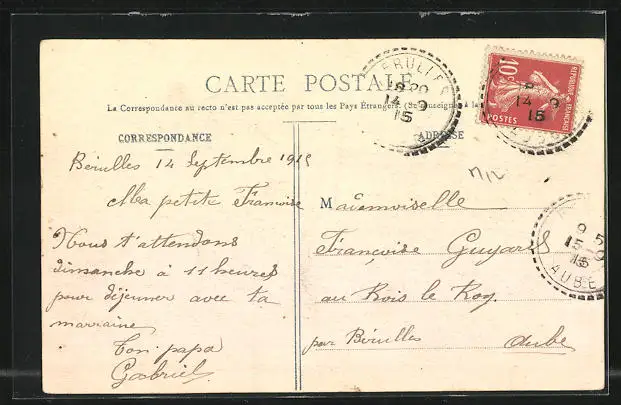 CARTE POSTALE
La Correspondance au recto n'est pas acceptée par tous les Pays Étrangers. (Se renseigner à la
CORRESPONDANCE
ADRESSE
Bérulles 14 Septembre 1915
Ma petite Françoise
Nous t'attendons
dimanche à 11 heures
pour déjeuner avec ta
marraine
Ton papa
Gabriel
Mademoiselle
Françoise Guyard
au Bois le Roy.
par Bérulles Aube
BERULLES
14 9
15
10c
REPUBLIQUE FRANÇAISE
POSTES
14 9
15
15
15
AUBE